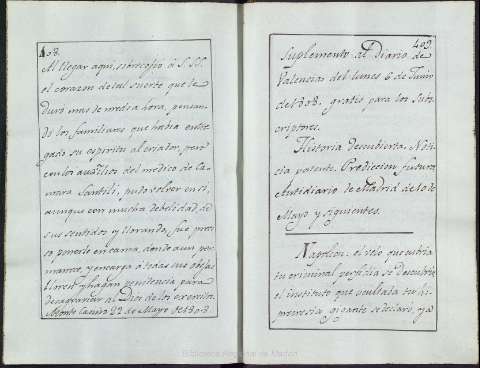 408.
Al llegar aqui, estrecosio á S. SS.
el corazon de tal suerte que le
duró mas de media hora, pensan-
do los familiares que habia entre-
gado su espiritu al criador, pero
con los auxilios del medico de Ca-
mara Santili, pudo volver en sí,
aunque con mucha debilidad, de
sus sentidos y llorando, fué preci-
so ponerlo en cama, donde aun per-
manece, y encarga á todas sus obejas
lloren y hagan penitencia para
desagraviar al Dios de los exercitos.
Monte Cavino 22 de Mayo de 1808
409
Suplemento al Diario de
Valencia del lunes 6 de Junio
de 1808. gratis para los Subs-
criptores.
Historia descubierta. Noti-
cia patente. Prediccion futura
Antidiario de Madrid de 10 de
Mayo y siguientes.
Napoleon: el velo que cubria
tu criminal perfidia se descubrió
el instituto que ocultaba tu hi-
pocresia, gigante se declaró, ya
Biblioteca Regional de Madrid